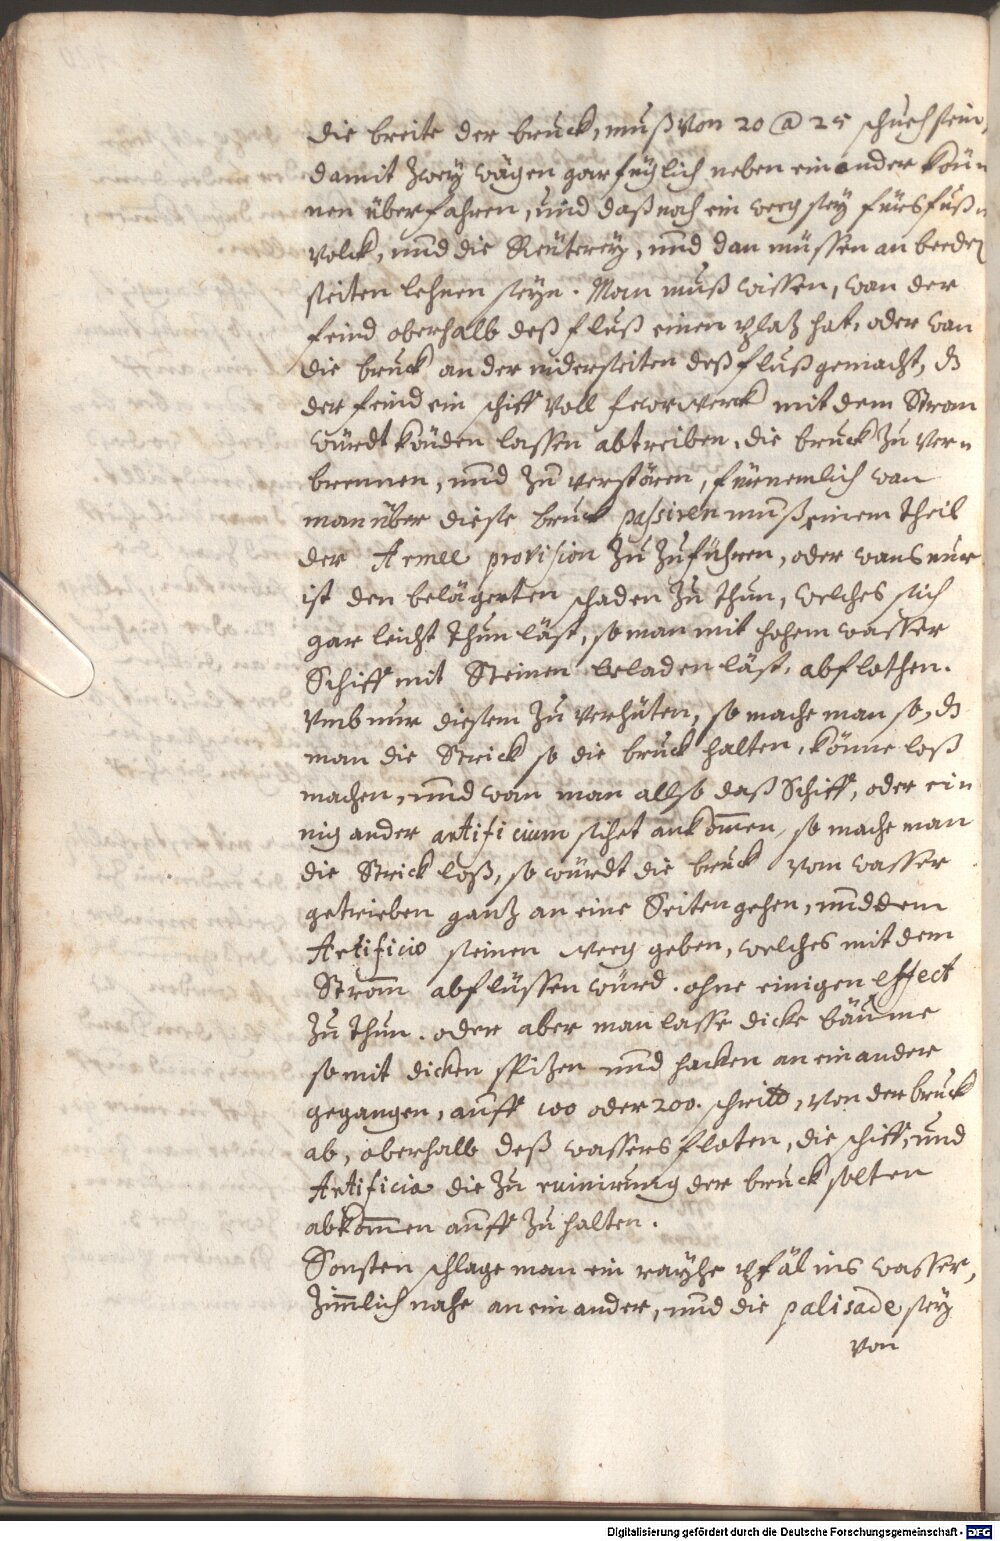 die breite der bruck, muß von 20 @ 25 schuch sein,
damit zwey wägen gar füglich neben einander kön
nen überfahren, und daß noch ein weeg sey fürs fuß
volck, unnd die Reüterey, unnd dan müssen an beeden
seiten lehnen seyn. Man muß wissen, wan der
feind oberhalb deß fluß einen platz hat, oder wan
die bruck an der niderseiten deß fluß gemacht, dz
der feind ein schiff voll feworwerck mit dem Strom
würdt könden lassen abtreiben, die bruck zu ver
brennen, unnd zu verstören, fürnemlich wan
man über diese bruck passiren muß, einem theil
der Armee provision zu zuführen, oder wans nur
ist den belägerten schaden zu thun, welches sich
gar leicht thun läst, so man mit hohem wasser
Schiff mit Steinen beladen läst, abflothen.
Umb nur diesem zu verhüten, so mache man so, dz
man die Strick so die bruck halten, könne loß
machen, unnd wan man allso daß Schiff, oder ein
nig ander artificium sihet ankommen, so mache man
die Strick loß, so würdt die bruck vom wasser
getrieben gantz an eine Seiten gehen, unnd dem
Artificio seinen weeg geben, welches mit dem
Stromm abflüssen würd. ohne einigen effect
zu thun. oder aber man lasse dicke bäume
so mit dicken spitzen unnd hacken an einander
gegangen, auff 100 oder 200. schritt, von der bruck
ab, oberhalb deß wassers floten, die schiff, und
Artificia die zu ruinirung der bruck solten
abkommen auff zu halten.
Sonsten schlage man ein rayhe pfäl ins wasser,
zimmlich nahe an einander, unnd die palisade sey
von
Digitalisierung gefördert durch die Deutsche Forschungsgemeinschaft - DFG